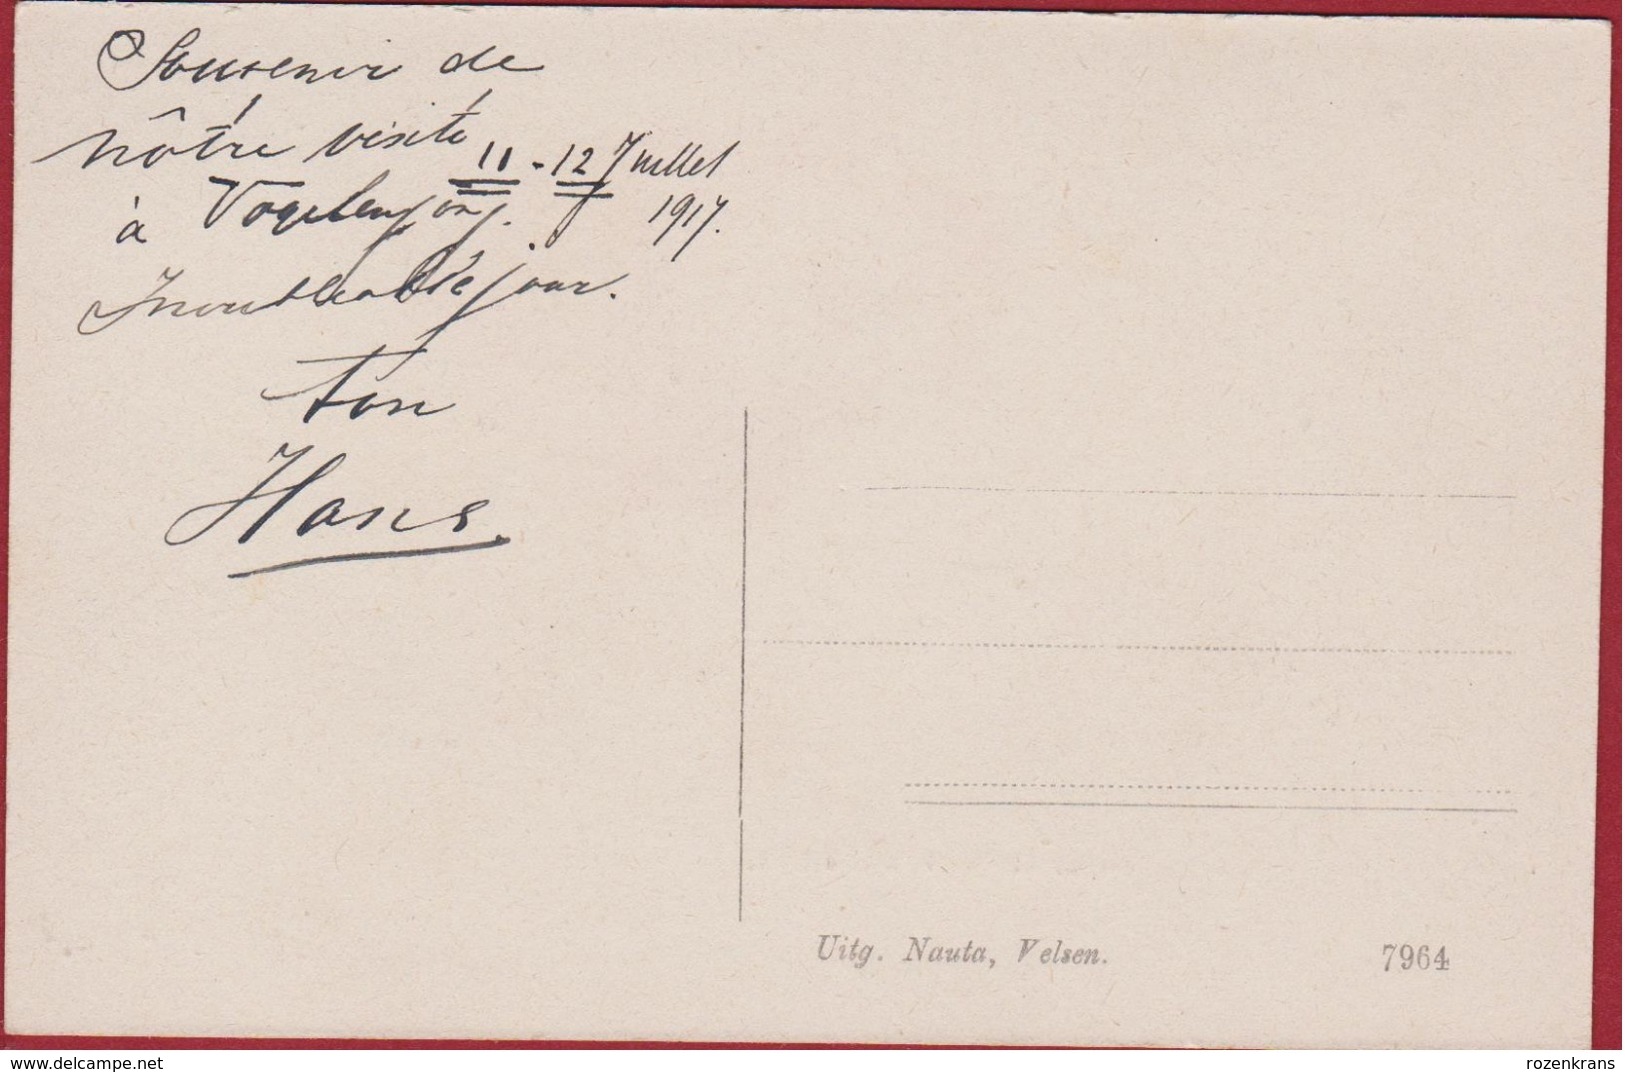 Souvenir de
nôtre visite
11 - 12 Juillet
1917.
à Vogelenzang.
Inoubliable jour.
ton
Hans.
Uitg. Nauta, Velsen.
7964
delcampe.net
rozenkrans